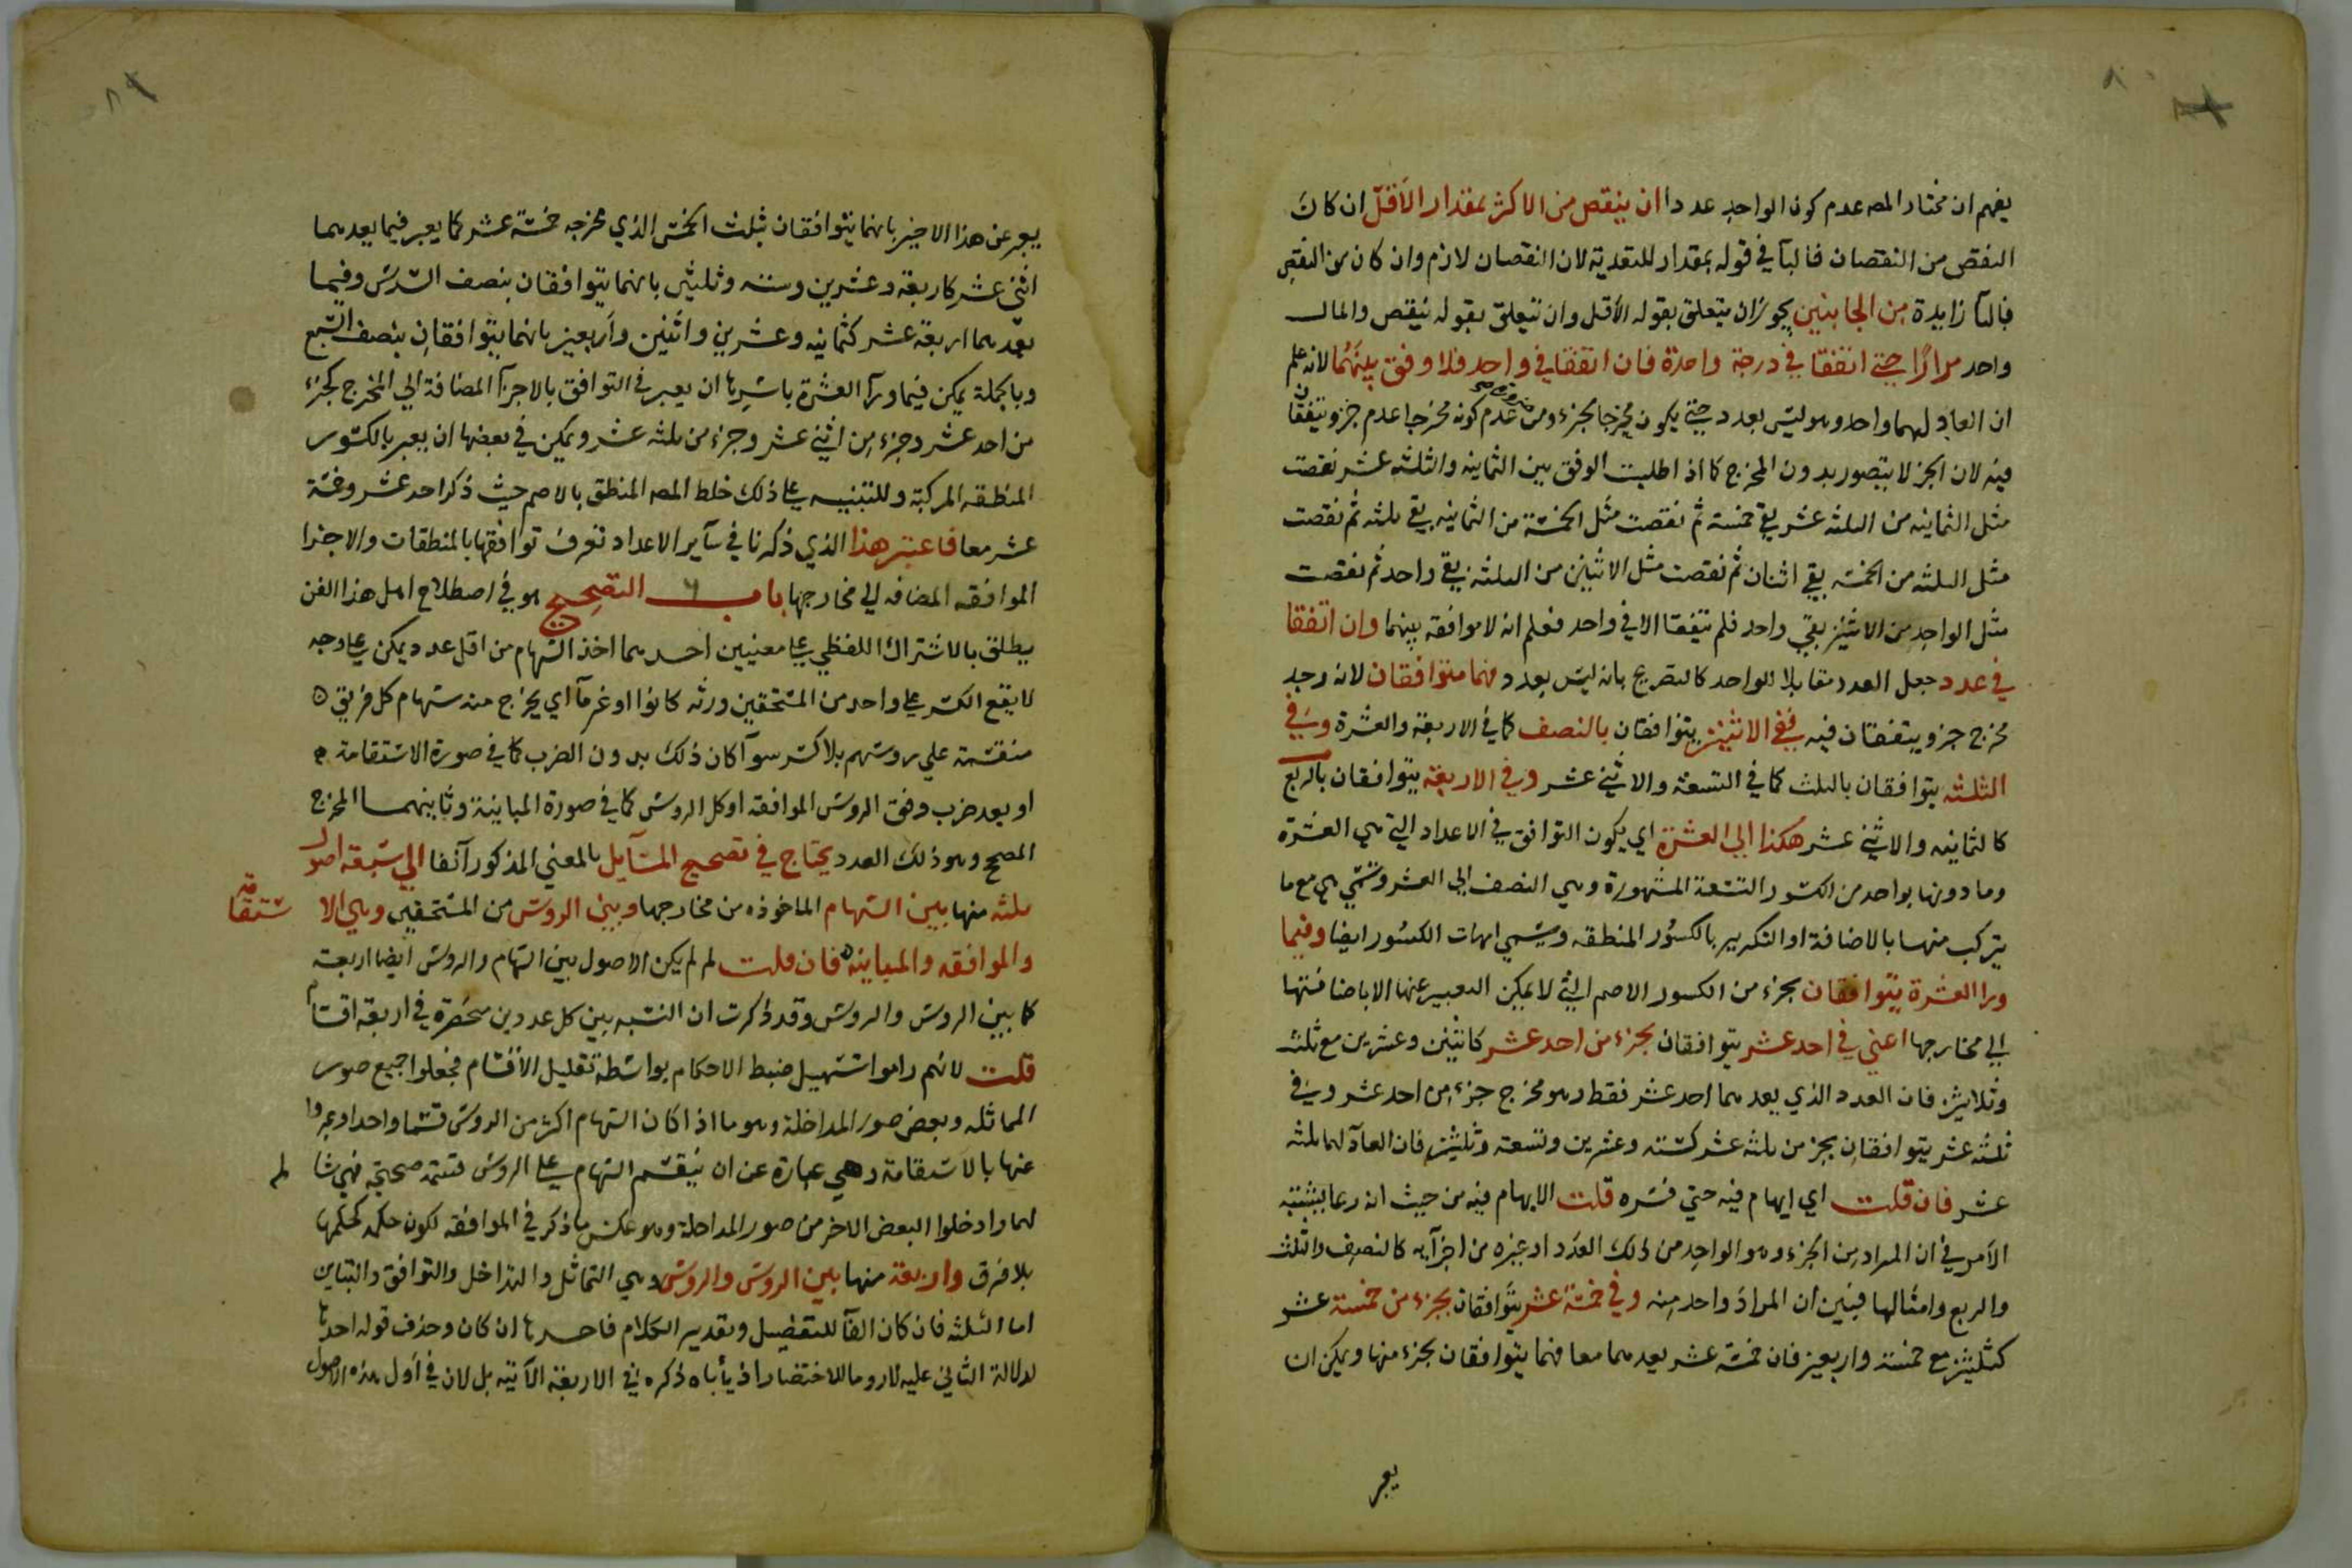 يفهم ان مختار المصـ عدم كون الواحد عددا ان ينقص من الاكثر بمقدار الأقل ان كان
النقص من النقصان فالبآ في قوله بمقدار للتعدية لان النقصان لازم وان كان من النقص
فالبآ زايدة من الجانبين يجوز ان يتعلق بقوله الأقل وان يتعلق بقوله ينقص والمال
واحد مرارًا حتى اتفقا في درجة واحدة فان اتفقا في واحد فلا وفق بينهما لانه علم
ان العاد لهما واحد وهو ليس بعدد حتى يكون مخرجا لجزء ومن عدم كونه مخرجا عدم جزو يتفقان
فيه لان الجز لا يتصور بدون المخرج كما اذا طلبت الوفق بين الثمانيه والثلثه عشر نقصت
مثل الثمانيه من الثلثه عشر بقي خمسة ثم نقصت مثل الخمسة من الثمانيه بقي ثلثه ثم نقصت
مثل الثلثه من الخمسه بقي اثنان ثم نقصت مثل الاثنين من الثلثه بقي واحد ثم نقصت
مثل الواحد من الاثنين بقي واحد فلم يتفقا الا في واحد فعلم انه لا موافقه بينهما وان اتفقا
في عدد جعل العدد مقابلا للواحد كالتصريح بانه ليس بعدد فهما متوافقان لانه وجد
مخرج جزو يتفقان فيه ففي الاثنين يتوافقان بالنصف كما في الاربعة والعشرة وفي
الثلثه يتوافقان بالثلث كما في التسعة والاثني عشر وفي الاربعة يتوافقان بالربع
كالثمانيه والاثني عشر هكذا الى العشرة اي يكون التوافق في الاعداد التي هي العشرة
وما دونها بواحد من الكسور التسعة المشهورة وهي النصف الى العشر وتسمى هي مع ما
يتركب منها بالاضافة او التكرير بالكسور المنطقه وتسمى امهات الكسور ايضا وفيما
ورا العشرة يتوافقان بجزء من الكسور الاصم التي لا يمكن التعبير عنها الا باضافتها
الى مخارجها اعني في احد عشر يتوافقان بجزء من احد عشر كاثنين وعشرين مع ثلث
وثلاثين فان العدد الذي يعدهما احد عشر فقط وهو مخرج جزء من احد عشر وفي
ثلثه عشر يتوافقان بجز من ثلثه عشر كستة وعشرين وتسعة وثلثين فان العاد لهما ثلثه
عشر فان قلت اي ابهام فيه حتى فسره قلت الابهام فيه من حيث انه ربما يشتبه
الأمر في ان المراد من الجزء وهو الواحد من ذلك العدد او غيره من اجزآيه كالنصف والثلث
والربع وامثالها فبين ان المراد واحد منه وفي خمسة عشر يتوافقان بجزء من خمسة عشر
كثلثين مع خمسة واربعين فان خمسة عشر يعدهما معا فهما يتوافقان بجزء منها ويمكن ان
يعبر
يعبر عن هذا الاخير بانهما يتوافقان بثلث الخمس الذي مخرجه خمسة عشر كما يعبر فيما يعدهما
اثني عشر كاربعة وعشرين وستة وثلثين بانهما يتوافقان بنصف السدس وفيما
يعدهما اربعة عشر كثمانيه وعشرين واثنين وأربعين بانهما يتوافقان بنصف السبع
وبالجملة يمكن فيما ورآ العشرة باسرها ان يعبر في التوافق بالاجزآ المضافة الى المخرج كجزء
من احد عشر وجزء من اثني عشر وجزء من ثلثه عشر ويمكن في بعضها ان يعبر بالكسور
المنطقه المركبة وللتنبيه على ذلك خلط المصـ المنطق بالاصم حيث ذكر احد عشر وخمسة
عشر معا فاعتبر هذا الذي ذكرنا في سآير الاعداد تعرف توافقها بالمنطقات والاجزا
الموافقه المضافه الى مخارجها باب التصحيح هو في اصطلاح اهل هذا الفن
يطلق بالاشتراك اللفظي على معنيين احدهما اخذ السهام من اقل عدد يمكن على وجه
لا يقع الكسر على واحد من المستحقين ورثه كانوا او غرمآ اي يخرج منه سهام كل فريق
منقسمة على روسهم بلا كسر سوآ كان ذلك بدون الضرب كما في صورة الاستقامة
او بعد ضرب وفق الروس الموافقه او كل الروس كما في صورة المباينة وثانيهما المخرج
المصحح وهو ذلك العدد يحتاج في تصحيح المسآيل بالمعني المذكور آنفا الى سبعة اصول
ثلثه منها بين السهام الماخوذه من مخارجها وبين الروس من المستحقين وهي الاستقامه
والموافقه والمباينه فان قلت لم لم يكن الاصول بين السهام والروس ايضا اربعة
كما بين الروس والروس وقد ذكرت ان النسبه بين كل عددين منحصرة في اربعة اقسام
قلت لانهم راموا تسهيل ضبط الاحكام بواسطة تقليل الأقسام فجعلوا جميع صور
المماثله وبعض صور المداخلة وهو ما اذا كان السهام اكثر من الروس قسما واحدا وعبروا
عنها بالاستقامة وهي عبارة عن ان ينقسم السهام على الروس قسمة صحيحة فهي شاملة
لهما وادخلوا البعض الاخر من صور المداخلة وهو عكس ما ذكر في الموافقه لكون حكمه كحكمها
بلا فرق واربعة منها بين الروس والروس وهي التماثل والتداخل والتوافق والتباين
اما الثلثه فان كان الفآ للتفصيل وتقدير الكلام فاحدها ان كان وحذف قوله احدها
لدلالة الثاني عليه لا روما للاختصار اذ يأباه ذكره في الاربعة الآتيه بل لان في أول هذه الاصول